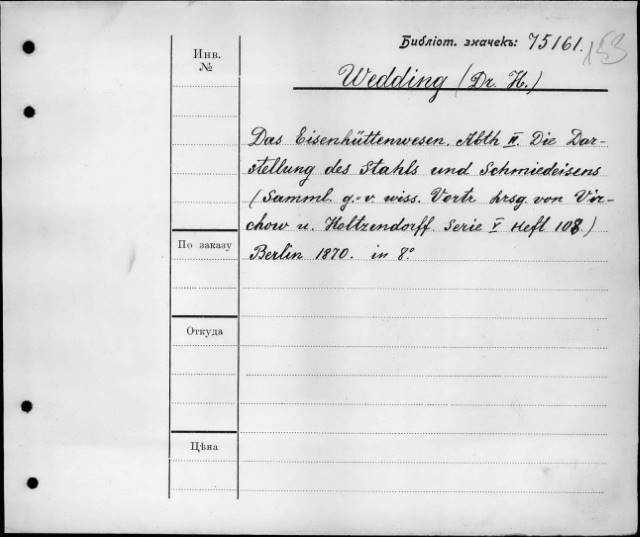 Библіот. значекъ: 75161. 153
Инв.
№
Wedding (Dr. H.)
Das Eisenhüttenwesen. Abth II. Die Dar-
stellung des Stahls und Schmiedeisens
(Samml. g.-v. wiss. Vortr hrsg. von Vir-
chow u. Holtzendorff. Serie V Heft 108.)
Berlin 1870. in 8º
По заказу
Откуда
Цѣна